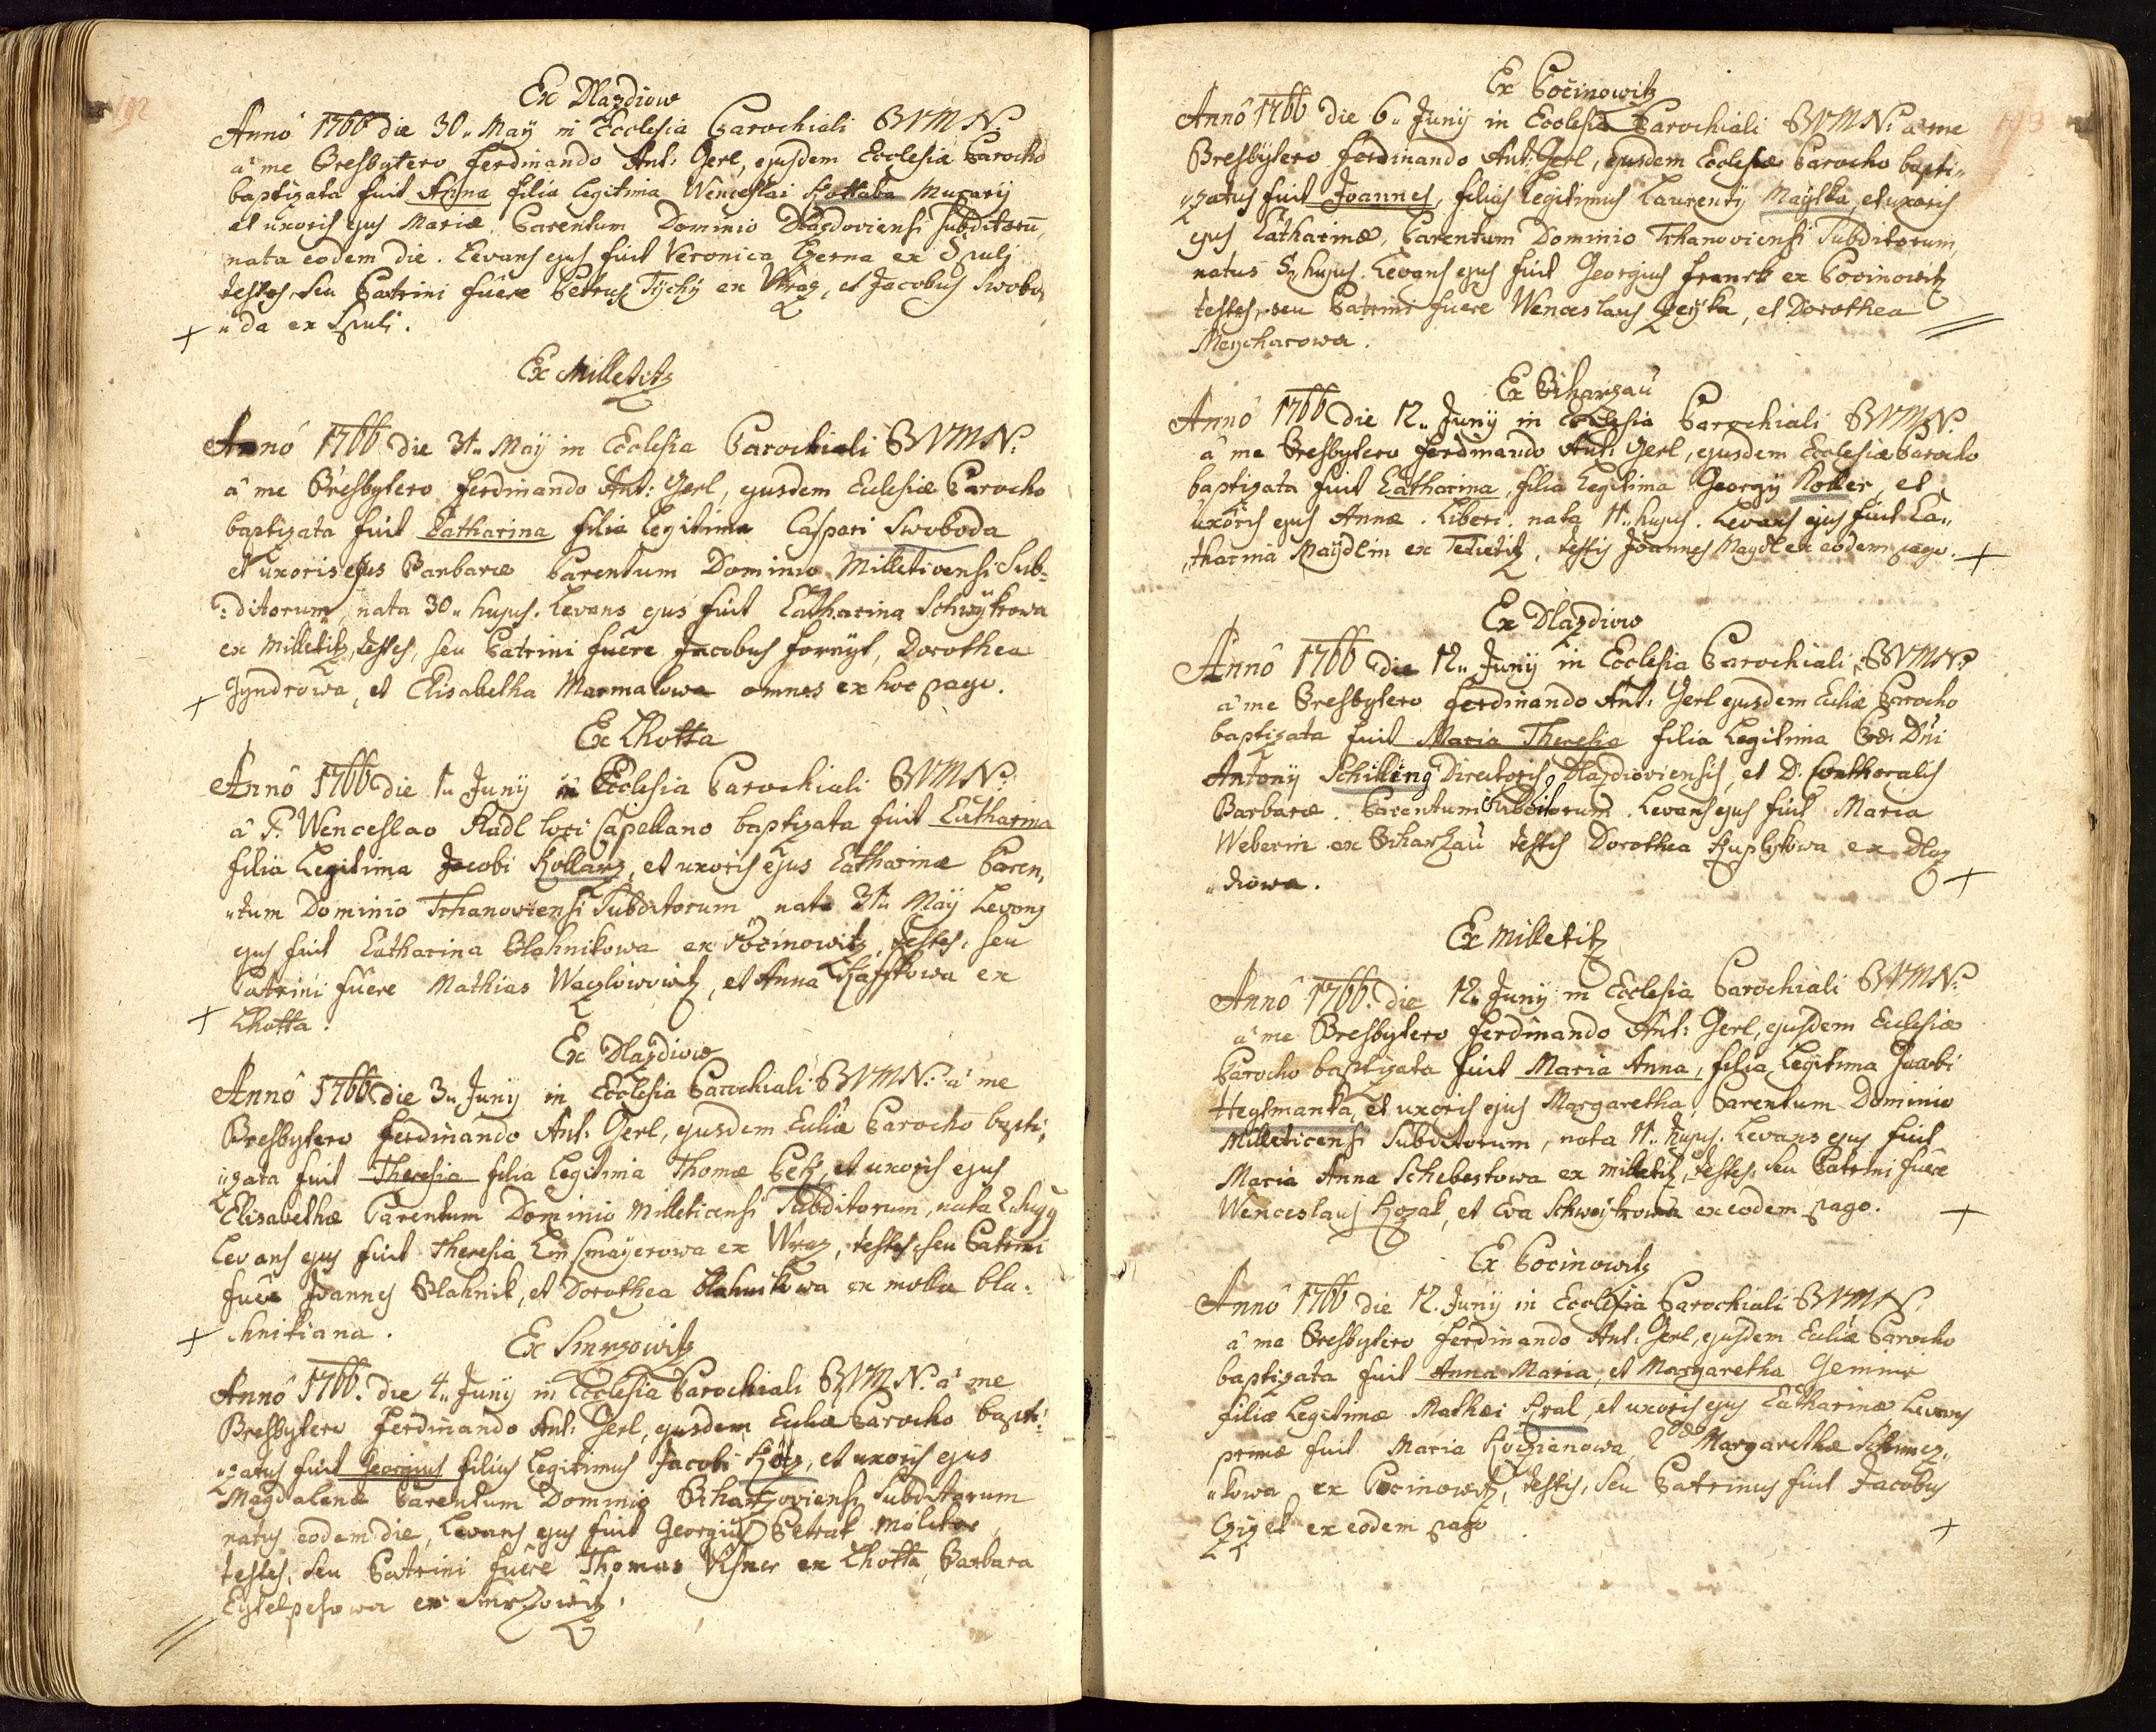 192
Ex Dlazdiow
Annô 1766 die 30„ Maÿ in Ecclesia Parochiali BVMN.
â me Presbytero Ferdinando Ant: Gerl, ejusdem Ecclesiæ Parocho
baptizata fuit Anna filia legitima Wenceslai Kottaba Murarij
et uxoris ejus Mariæ, Parentum Dominio Dlazdoviensi subditorū,
nata eodem die. Levans ejus fuit Veronica Czerna ex
testes, seu Patrini fuêre Petrus Tychÿ ex Wraz, et Jacobus Swobo„
„da ex
Ex Milletitz
Annô 1766 die 31„ Maÿ in Ecclesia Parochiali BVMN:
â me Presbytero Ferdinando Ant: Gerl, ejusdem Eclesiæ Parocho
baptizata fuit Catharina filia legitima Caspari Swoboda
et uxoris ejus Barbaræ Parentum Dominio Milleticensi Sub-
:ditorum, nata 30„ hujus. Levans ejus fuit Catharina Schwÿkrowa
ex Milletitz, testes, seu Patrini fuêre Jacobus Fornÿt, Dorothea
Gyndrowa, et Elisabetha Marmalowa omnes ex hoc pago.
Ex Lhotta
Annô 1766 die 1„ Junij in Ecclesia Parochiali BVMN:
â P. Wenceslao Kadl loci Capellano baptizata fuit Catharina
filia Legitima Jacobi Kollarz, et uxoris ejus Catharinæ Paren„
„tum Dominio Tchanoviensi Subditorum nata 31„ Maÿ Levans
ejus fuit Catharina Blahnikowa ex Pocinowitz, testes, seu
Patrini fuêre Mathias Wazlowowitz, et Anna ex
Lhotta.
Ex Dlazdiow
Annô 1766 die 3„ Junij in Ecclesia Parochiali BVMN: â me
Presbytero Ferdinando Ant: Gerl, ejusdem Ecliæ Parocho bapti„
„zata fuit Theresia filia legitima Thomæ Betz, et uxoris ejus
Elisabethæ Parentum Dominio Milleticensi Subditorum, nata 2 hujus
Levans ejus fuit Theresia Linsmaÿerowa ex Wraz, testes, seu Patrini
fuêre Joannes Blahnik, et Dorothea Blahnikowa ex molla bla:
:hnikiana.
Ex Smrzowitz
Annô 1766. die 4„ Junij in Ecclesia Parochiali BVMN. â me
Presbytero Ferdinando Ant: Gerl, ejusdem Ecliæ Parocho bapti„
„zatus fuit Georgius filius legitimus Jacobi Kotz, et uxoris ejus
Magdalenæ Parentum Dominio Biharzoviensi Subditorum
natus eodem die, Levans ejus fuit Georgius Petrak molitor
testes, seu Patrini fuêre Thomas Visner ex Lhotta, Barbara
ex Smrzowitz.
193
Ex Pocinowitz
Annô 1766 die 6„ Junij in Ecclesia Parochiali BVMN: â me
Presbÿtero Ferdinando Ant: Gerl, ejusdem Eclesiæ Parocho bapti„
„zatus fuit Joannes, filius legitimus Laurentÿ Maÿska, et uxoris
ejus Catharinæ, Parentum Dominio Tchanoviensi Subditorum,
natus 5„ hujus. Levans ejus fuit Georgius Franck ex Pocinowitz
testes, seu Patrini fuêre Wenceslaus Peÿka, et Dorothea
Meycharowa.
Ex Biharzau
Annô 1766 die 12„ Junij in Ecclesia Parochiali BVMN.
â me Presbytero Ferdinando Ant: Gerl, ejusdem Ecclesiæ Parocho
baptizata fuit Catharina, filia Legitima Georgÿ Koller, et
uxoris ejus Annæ. Liberi. nata 11„ hujus. Levans ejus fuit Ca„
„tharina Maÿdlin ex Tetietitz, testis Joannes Maydl ex eodem pago.
Ex Dlazdiow
Annô 1766 die 12„ Junij in Ecclesia Parochiali BVMN:
â me Presbytero Ferdinando Ant: Gerl ejusdem Ecliæ Parocho
baptizata fuit Maria Theresia filia Legitima Præ: Dni
Antonÿ Schilling Directoris Dlazdioviensis, et D. Conthoralis
Barbaræ. Parentum Subditorum. Levans ejus fuit Maria
Weberin ex Biharzau testis Dorothea Kuplykowa ex Dlaz
„diowa.
Ex Milletitz
Annô 1766. die 12„ Junij in Ecclesia Parochiali BVMN:
â me Presbytero Ferdinando Ant: Gerl, ejusdem Eclesiæ
Parocho baptizata fuit Maria Anna, filia Legitima Jacobi
Heytmanka, et uxoris ejus Margaretha, Parentum Dominio
Milleticensi Subditorum, nata 11„ hujus. Levans ejus fuit
Maria Anna Schebestowa ex milletitz, testes, seu Patrini fuêre
Wenceslaus Kozak, et Eva Schwÿkrowa ex eodem pago.
Ex Pocinowitz
Annô 1766 die 12. Junij in Ecclesia Parochiali BVMN.
â me Presbytero Ferdinando Ant: Gerl, ejusdem Ecliæ Parocho
baptizata fuit Anna Maria, et Margaretha Geminæ
filiæ Legitimæ Mathæi Kral, et uxoris ejus Catharinæ Levans
primæ fuit Maria Koczianowa, 2dæ Margarethæ
„kowa ex Pocinowitz, testis, seu Patrinus fuit Jacobus
Czizek ex eodem pago